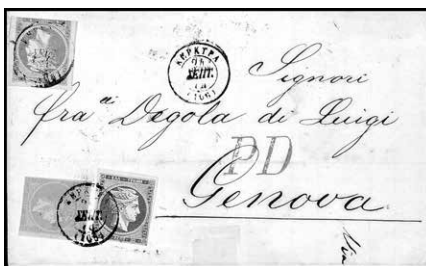 ΚΕΡΚΥΡΑ
25
ΣΕΠΤ.
(106)
Signori
fra di Degola di Luigi
PD
Genova
ΣΕΠΤ.
(106)
Via